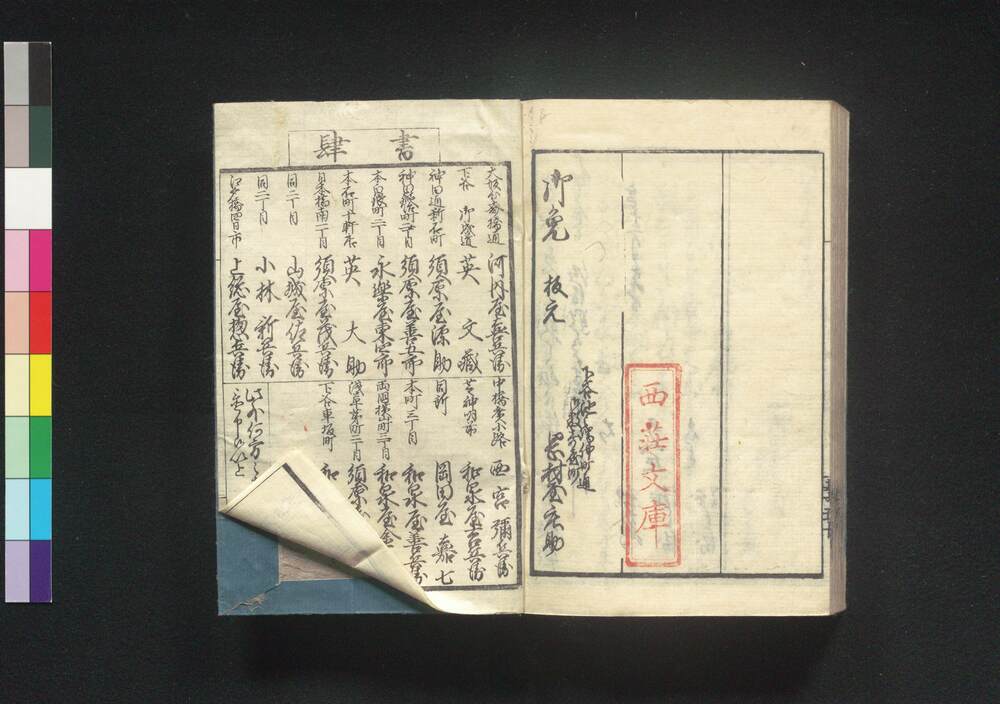 西荘文庫
下谷池之端仲町通
岡村屋庄助
御免 板元
書肆
大坂心斎橋通 河内屋喜兵衛
下谷 御成道 英 文蔵
神田通新石町 須原屋源助
神田鍛冶町二丁目 須原屋善五郎
本白銀町二丁目 永楽屋東四郎
本石町十軒店 英 大助
日本橋南一丁目 須原屋茂兵衛
同二丁目 山城屋佐兵衛
同二丁目 小林新兵衛
江戸橋四日市 上総屋惣兵衛
中橋広小路 西宮彌兵衛
芝神明前 和泉屋吉兵衛
同所 岡田屋嘉七
本町三丁目 和泉屋善兵衛
両国横山町三丁目 和泉屋金
浅草茅町二丁目 須原
下谷車坂町 和